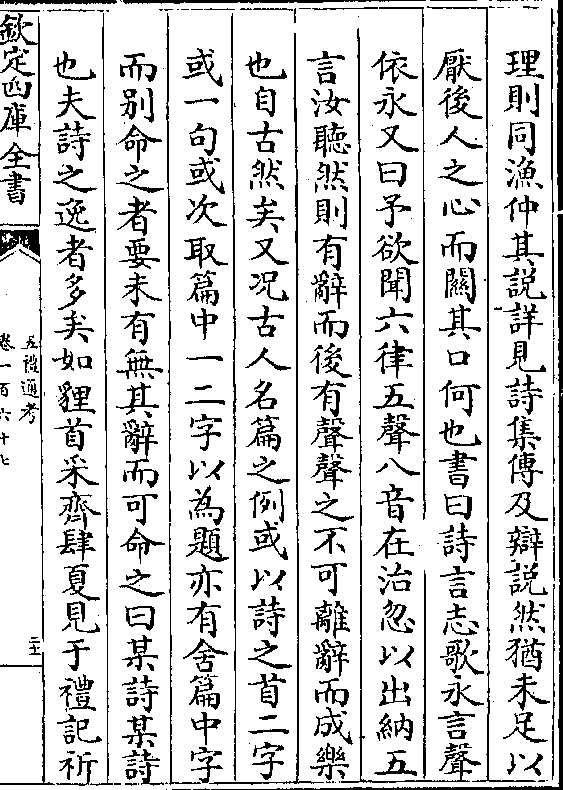 理則同漁仲其説詳見詩集傳及辯説然猶未足以
厭後人之心而關其口何也書曰詩言志歌永言聲
依永又曰予欲聞六律五聲八音在治忽以出納五
言汝聽然則有辭而後有聲聲之不可離辭而成樂
也自古然矣又况古人名篇之例或以詩之首二字
或一句或次取篇中一二字以為題亦有舍篇中字
而别命之者要未有無其辭而可命之曰某詩某詩
也夫詩之逸者多矣如貍首采齊肆夏見于禮記祈
欽定四庫全書
五禮通考
卷一百六十七